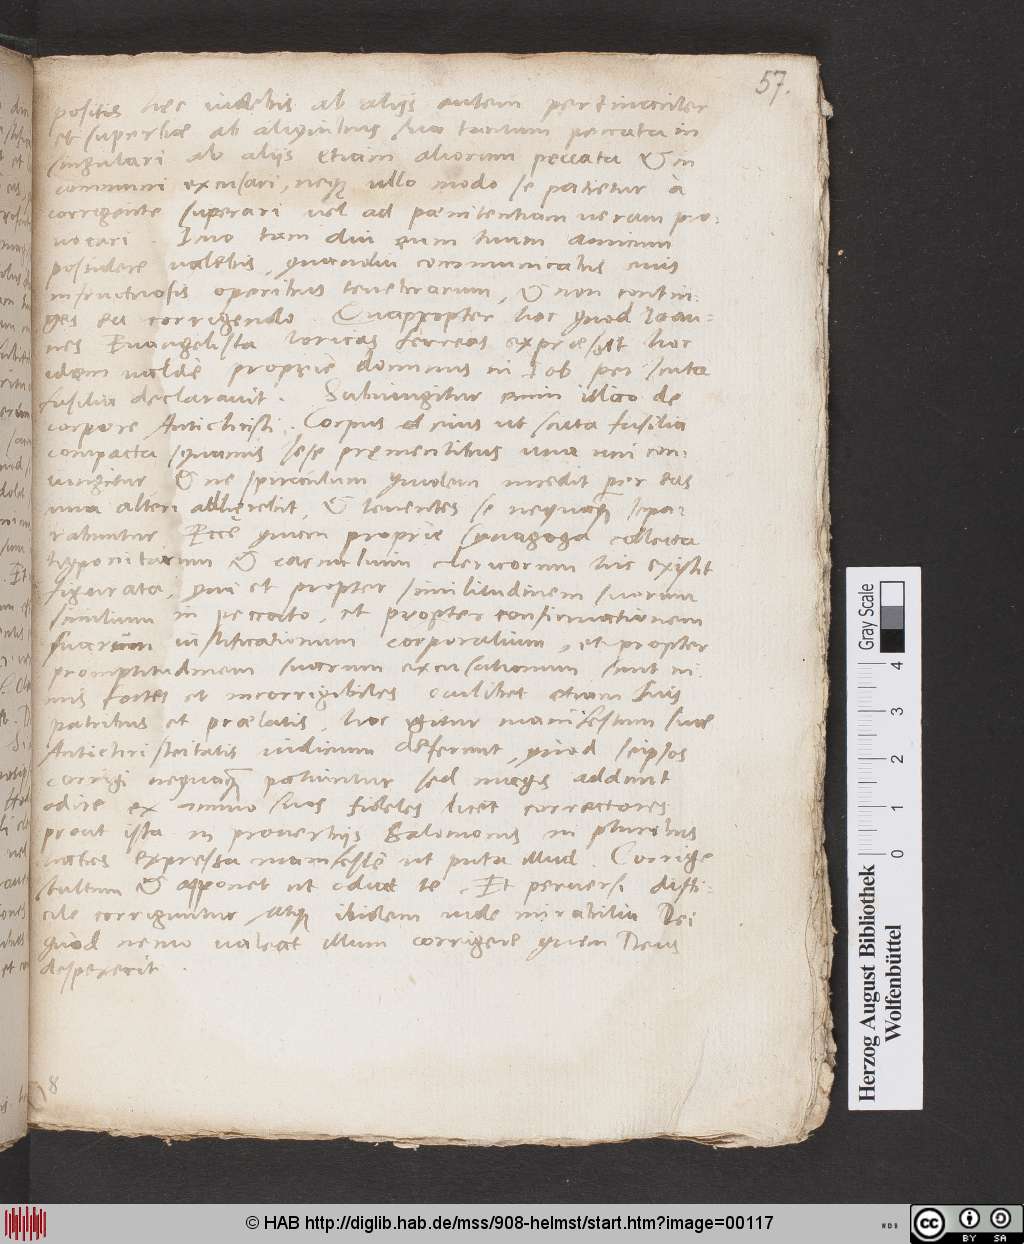 57.
positis nec videbis ab alijs autem pertinaciter
et superbe ab aliquibus sua tantum peccata in
singulari ab alijs etiam aliorum peccata & in
communi excusari, neque ullo modo se patietur à
corrigente superari vel ad pœnitentiam veram pro:
vocari. Imo tam diu eum tuum amicum
possidere valebis, quamdiu communicabis eius
infructuosis operibus tenebrarum, & non contin:
ges ea corrigendo. Quappropter hoc quod Ioan:
nes Evangelista loricas ferreas expressit hoc
idem valde proprie dominus in Iob per scuta
fusilia declaravit. Subiungitur enim illic de
corpore Antichristi. Corpus eius ut scuta fusilia
compacta squamis sese prementibus una uni con:
iungitur & ne spiraculum quidem incedit per eas
una alteri adherebit, & tenentes se nequaquam sepa:
rabuntur Ecce quam proprie synagoga collecta
hypocritarum & carnalium clericorum hic existit
figurata, qui et propter similitudinem suorum
similium in peccato, et propter confirmationem
suarum iustificationum corporalium, et propter
promptitudinem suarum excusationum sunt ni:
mis fortes et incorrigibiles cuilibet etiam suis
patribus et prælatis, hoc igitur manifestum suæ
Antichristeitatis indicium deferunt, quod seipsos
corrigi nequaquam patiuntur sed magis addunt
odire ex animo suos fideles licet correctores
prout ista in proverbijs Salomonis in pluribus
locis expressa manifeste ut puta illud. Corrige
stultum & apponet ut odiat te. Et perversi diffi:
cile corriguntur atque ibidem vide mirabilia Dei
quod nemo valeat illum corrigere quem Deus
despexerit.
8
Gray Scale
0 1 2 3 4
Herzog August Bibliothek
Wolfenbüttel
© HAB http://diglib.hab.de/mss/908-helmst/start.htm?image=00117
WDB
cc BY SA